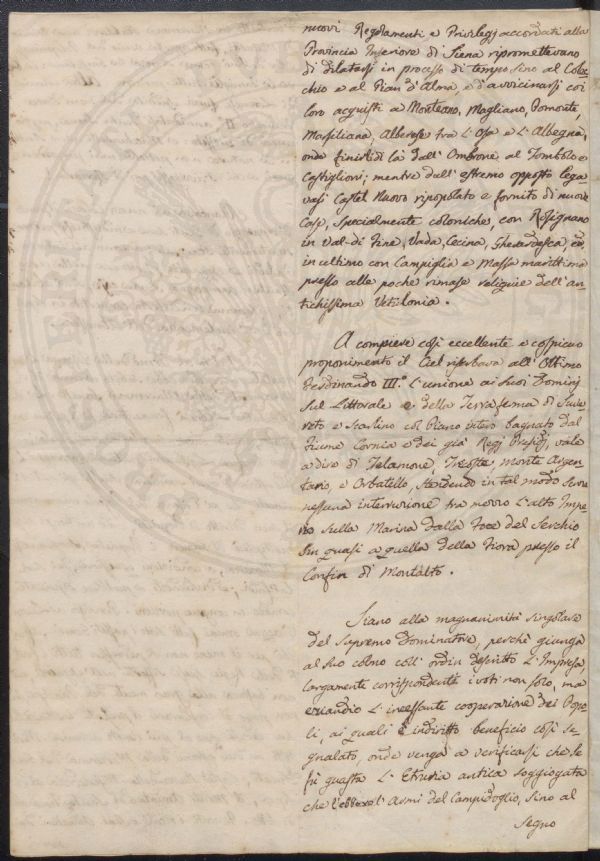 nuovi Regolamenti e Privilegj accordati alla
Provincia Inferiore di Siena ripromettevano
di dilatarsi in processo di tempo sino al Colec=
chio e al Pian d'Alma, e d'avvicinarsi coi
loro acquisti a Monteano, Magliano, Pomonte,
Marsiliana, Alberese tra l'Osa e l'Albegna,
onde finirli di là dall'Ombrone al Tombolo e
Castiglioni; mentre dall'estremo opposto lega=
vasi Castel Nuovo ripopolato e fornito di nuove
Case, specialmente coloniche, con Rosignano
in Val-di Fine, Vada, Cecina, Gherardesca, ed
in ultimo con Campiglia e Massa marittima
presso alle poche rimase reliquie dell'an=
tichissima Vetulonia.
A compiere così eccellente e cospicuo
proponimento il Ciel riserbava all'Ottimo
Ferdinando III.° l'unione ai Suoi Dominj
Sul Littorale e della Terra ferma di Suve=
reto e Scarlino col Piano intero bagnato dal
Fiume Cornia e dei già Regj Presidj, vale
a dire di Telamone, Monte Argen=
tario, e Orbatello, stendendo in tal modo senza
nessuna interruzione tra mezzo l'alto Impe=
ro sulla Marina dalla Foce del Serchio
fin quasi a quella della Fiora presso il
Confin di Montalto.
Siano alla magnanimità singolare
del Supremo Dominatore, perchè giunga
al suo colmo coll'ordin descritto l'Impresa,
largamente corrispondenti i voti non solo, ma
eziandio l'incessante cooperazione dei Popo=
li, ai quali è indiritto beneficio così se=
gnalato, onde venga a verificarsi che se
fù guasta l'Etruria antica soggiogata
che l'ebbero l'Armi del Campidoglio, sino al
segno